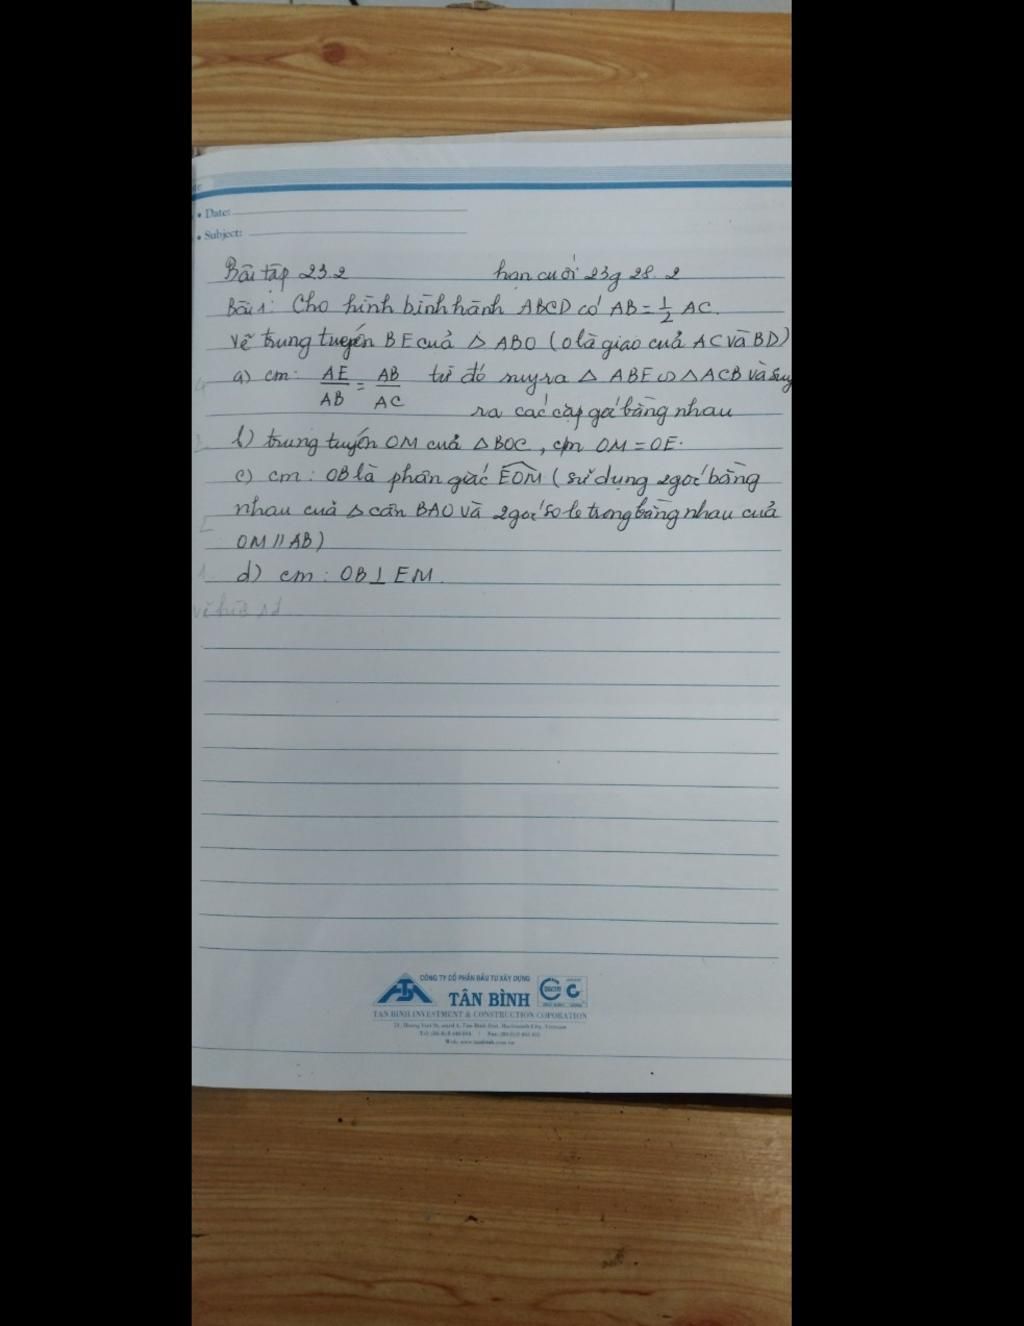 • Date:
• Subject:
Bài tập 23.2 hạn cuối 23g 28.2
Bài 1: Cho hình bình hành ABCD có AB = 1/2 AC.
Vẽ trung tuyến BE của △ ABO (O là giao của AC và BD)
a) cm: AE/AB = AB/AC từ đó suy ra △ ABE ∽ △ ACB và suy
ra các cặp góc bằng nhau
b) trung tuyến OM của △BOC, cm OM = OE.
c) cm: OB là phân giác EOM (sử dụng 2 góc bằng
nhau của △ cân BAO và 2 góc so le trong bằng nhau của
OM // AB)
d) cm: OB ⊥ EM.
CÔNG TY CỔ PHẦN ĐẦU TƯ XÂY DỰNG
TÂN BÌNH
TAN BINH INVESTMENT & CONSTRUCTION COPORATION